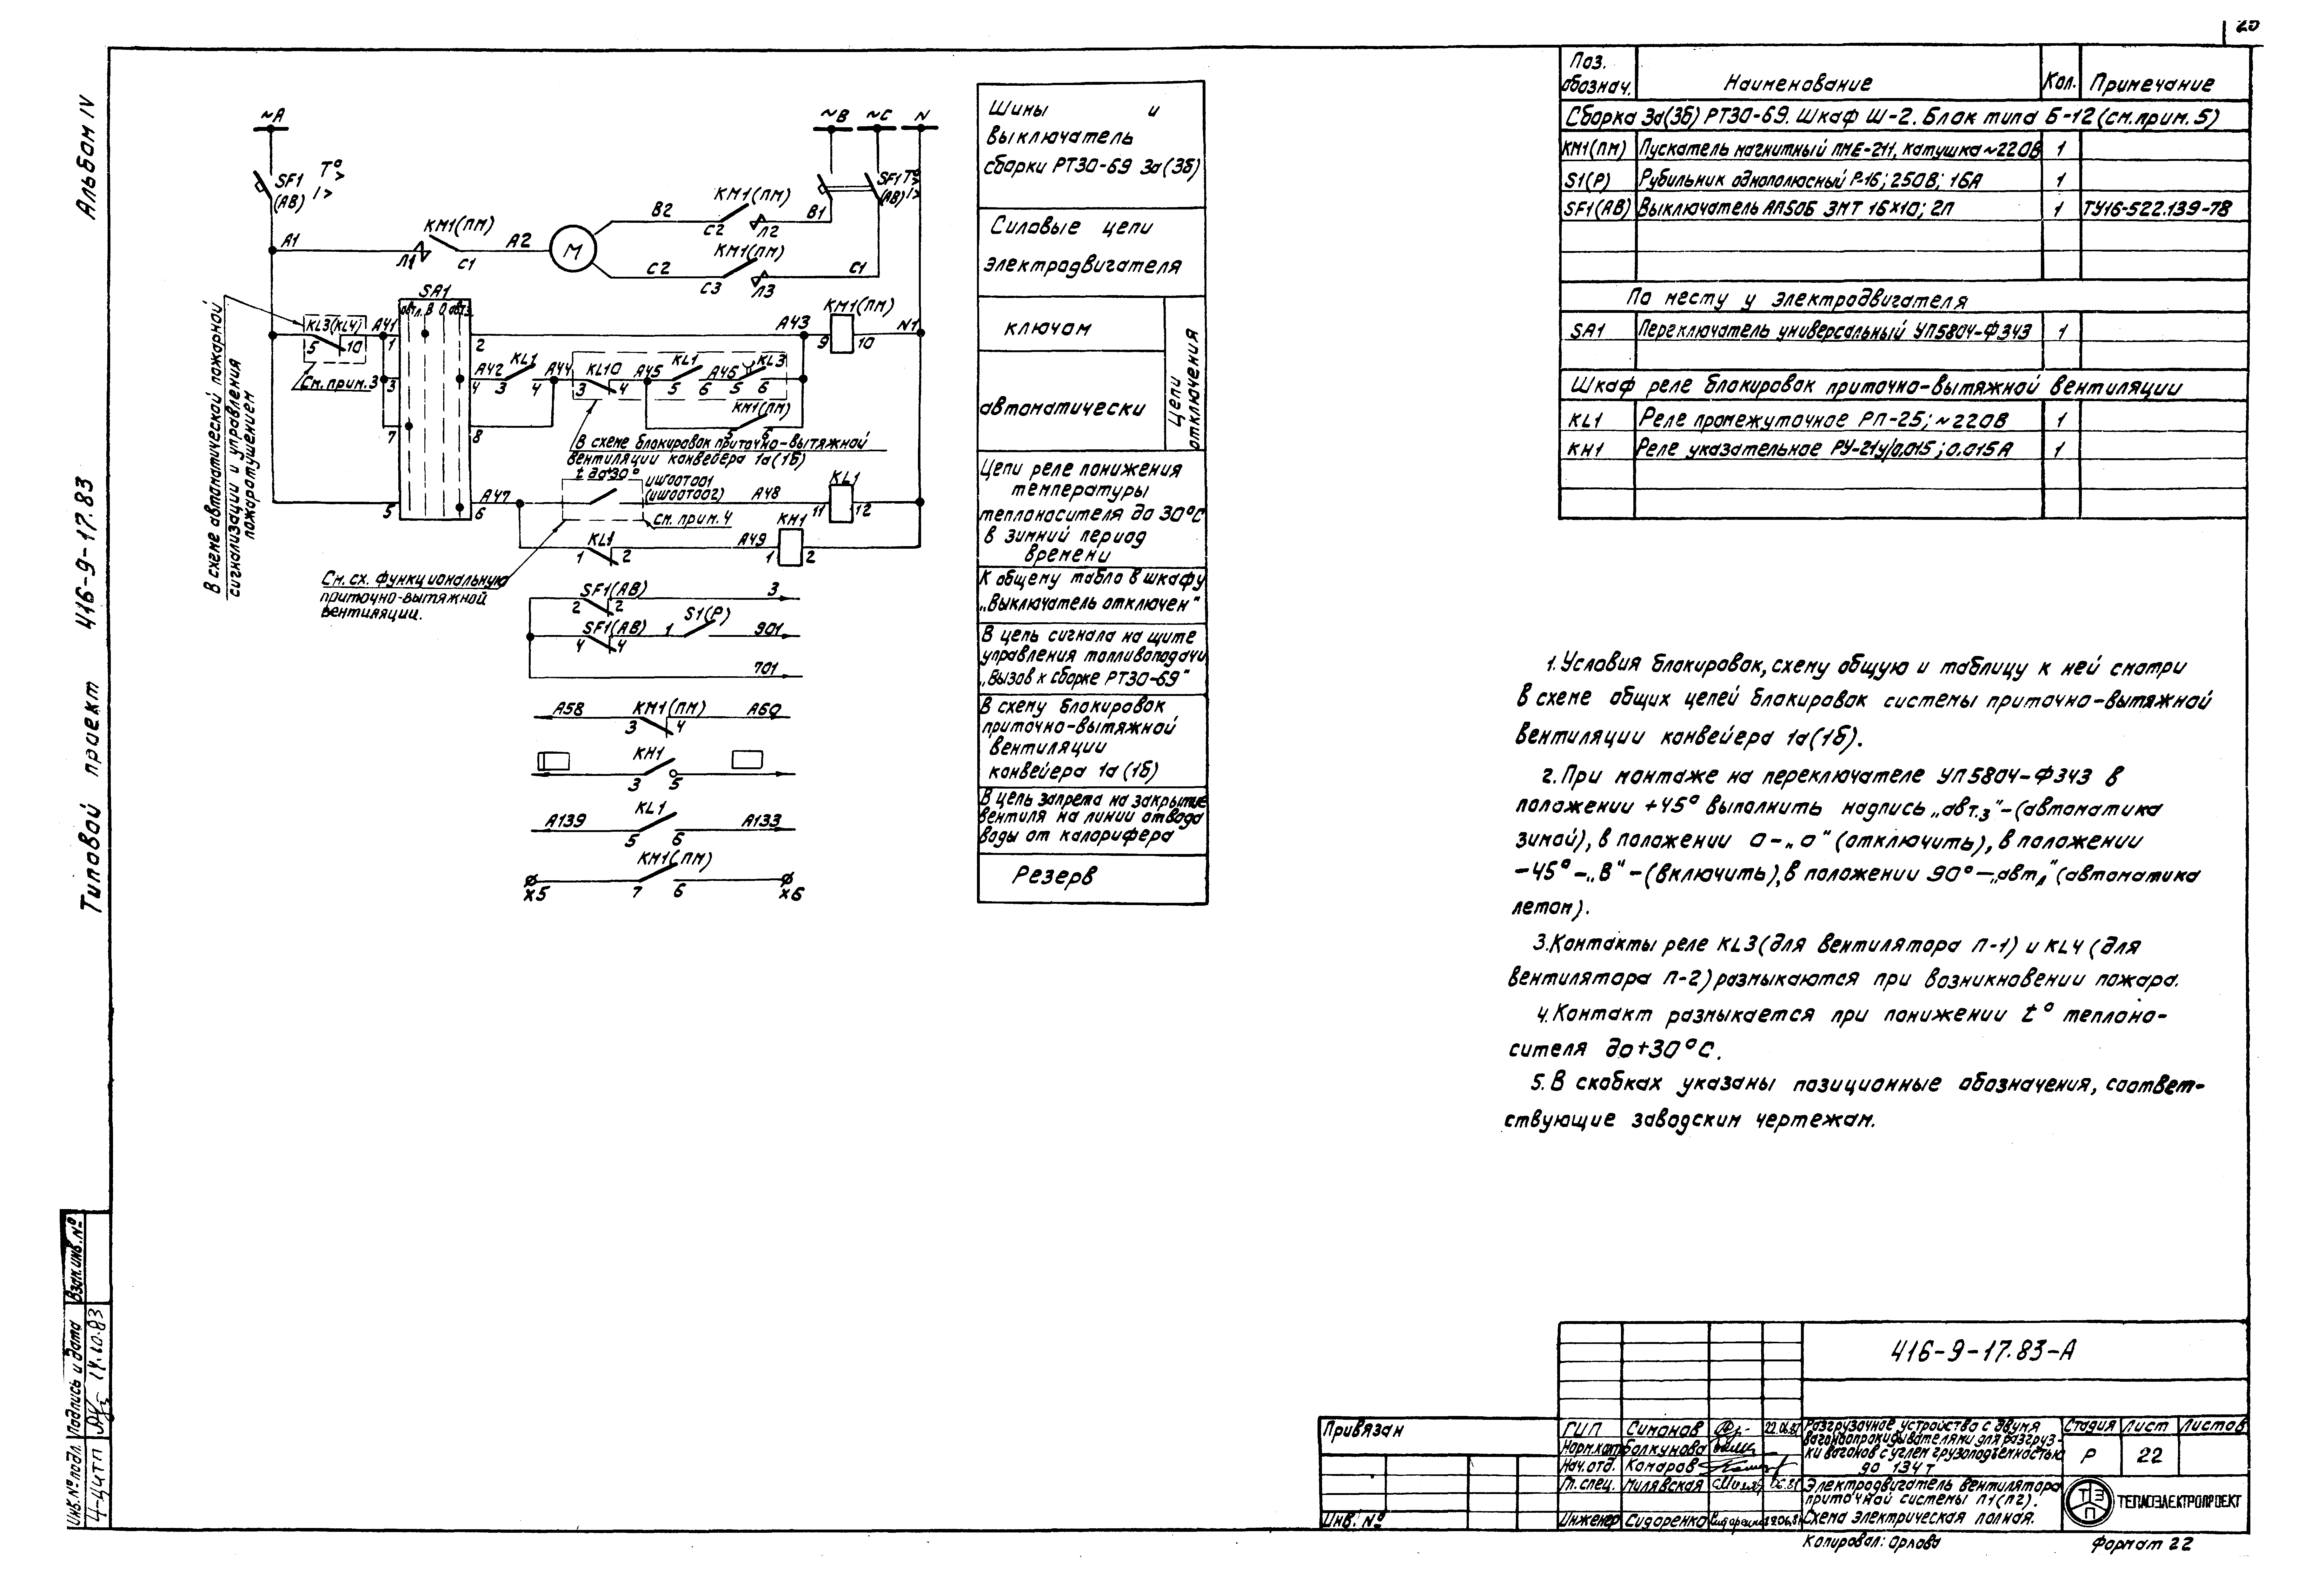 Альбом IV
Типовой проект 416-9-17.83
~А
~В
~С
N
SF1
(АВ)
Т°>
I>
SF1
(АВ)
Т°>
I>
А1
Л1
КМ1(ПМ)
С1
А2
М
В2
КМ1(ПМ)
С2
Л2
В1
С2
КМ1(ПМ)
С3
Л3
С1
В схеме автоматической пожарной
сигнализации и управления
пожаротушением
KL3(KL4)
5
10
А41
См.прим.3
SA1
авт.л. В О авт.з
1
2
3
4
7
8
5
6
А43
КМ1(ПМ)
9
10
N1
А42
KL1
3
4
А44
KL10
3
4
А45
KL1
5
6
А46
KL3
5
6
КМ1(ПМ)
5
6
В схеме блокировок приточно-вытяжной
вентиляции конвейера 1а(1б)
t до +30°
ИШ00Т001
(ИШ00Т002)
См. прим. 4
А47
А48
KL1
11
12
KL1
1
2
А49
КН1
1
2
См. сх. функциональную
приточно-вытяжной
вентиляции.
SF1(АВ)
2
2
3
SF1(АВ)
4
4
1
S1(Р)
901
701
А58
КМ1(ПМ)
3
4
А60
КН1
3
5
А139
KL1
5
6
А133
КМ1(ПМ)
Х5
7
6
Х6
Шины и
выключатель
сборки РТ30-69 3а(3б)
Силовые цепи
электродвигателя
ключом
автоматически
Цепи
отключения
Цепи реле понижения
температуры
теплоносителя до 30°С
в зимний период
времени
К общему табло в шкафу
„Выключатель отключен"
В цепь сигнала на щите
управления топливоподачи
„Вызов к сборке РТ30-69"
В схему блокировок
приточно-вытяжной
вентиляции
конвейера 1а(1б)
В цепь запрета на закрытие
вентиля на линии отвода
воды от калорифера
Резерв
Поз. обознач. Наименование Кол. Примечание
Сборка 3а(3б) РТ30-69. Шкаф Ш-2. Блок типа Б-12 (см.прим.5)
КМ1(ПМ) Пускатель магнитный ПМЕ-211, катушка ~220В 1
S1(Р) Рубильник однополюсный Р-16; 250В; 16А 1
SF1(АВ) Выключатель АП50Б 3МТ 16х10; 2П 1 ТУ16-522.139-78
По месту у электродвигателя
SA1 Переключатель универсальный УП5804-Ф343 1
Шкаф реле блокировок приточно-вытяжной вентиляции
KL1 Реле промежуточное РП-25; ~220В 1
КН1 Реле указательное РУ-21у/0.015; 0.015А 1
1. Условия блокировок, схему общую и таблицу к ней смотри
в схеме общих цепей блокировок системы приточно-вытяжной
вентиляции конвейера 1а(1б).
2. При монтаже на переключателе УП5804-Ф343 в
положении +45° выполнить надпись „авт.з"-(автоматика
зимой), в положении 0-„0" (отключить), в положении
-45°-„В"-(включить), в положении 90°-„авт.л" (автоматика
летом).
3. Контакты реле KL3 (для вентилятора П-1) и KL4 (для
вентилятора П-2) размыкаются при возникновении пожара.
4. Контакт размыкается при понижении t° теплоно-
сителя до +30°С.
5. В скобках указаны позиционные обозначения, соответ-
ствующие заводским чертежам.
Инв.№подл. Подпись и дата Взам.инв.№
4-ЦИТП 14.10.83
416-9-17.83-А
Привязан
Инв. №
ГИП Симонов 22.06.81
Норм.конт Болкунова
Нач.отд. Комаров
Гл.спец. Милявская 06.81
Инженер Сидоренко
Разгрузочное устройство с двумя
вагоноопрокидывателями для разгруз-
ки вагонов с углем грузоподъемностью
до 134т
Стадия Лист Листов
Р 22
Электродвигатель вентилятора
приточной системы П1(П2).
Схема электрическая полная.
ТЭП
ТЕПЛОЭЛЕКТРОПРОЕКТ
Копировал: Орлова
Формат 22